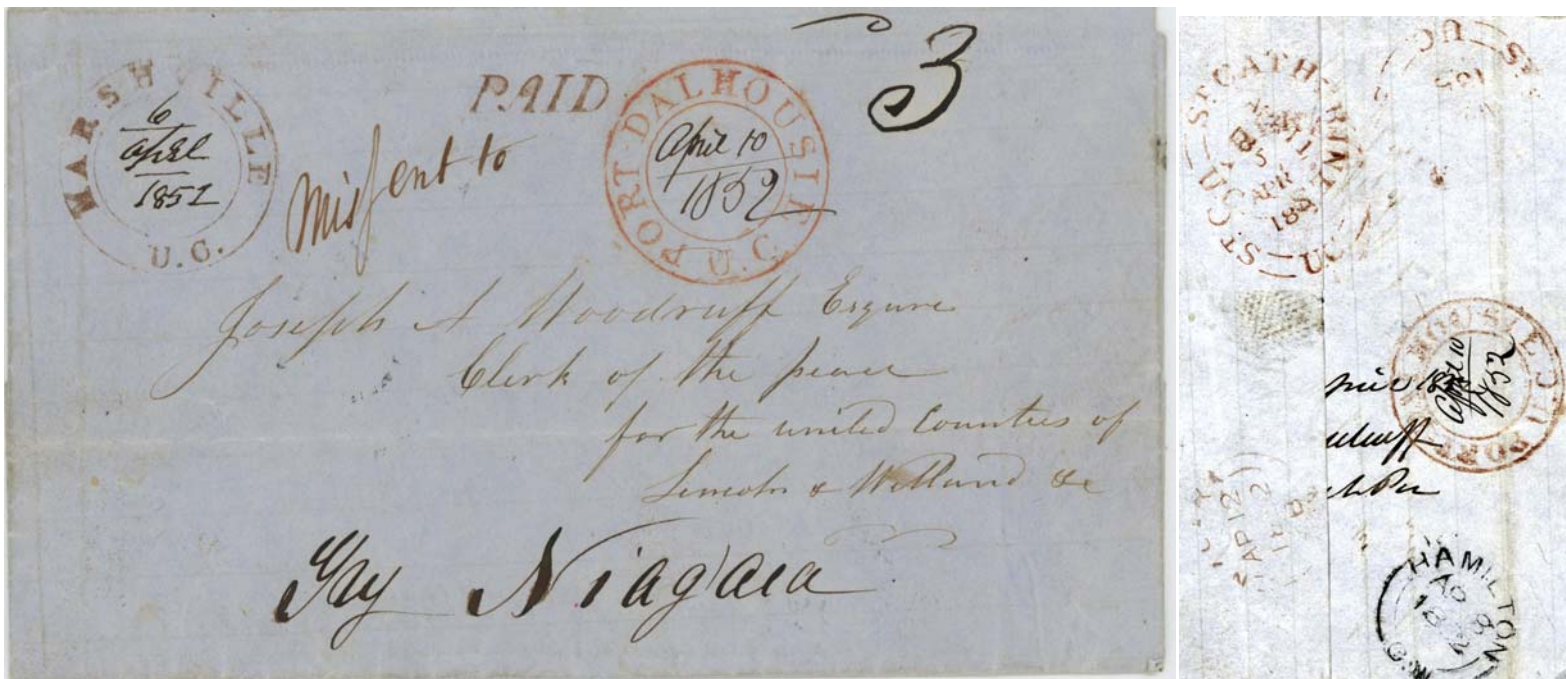 MARSHVILLE U.C.
6
April
1852
PAID
Missent to
PORT DALHOUSIE U.C.
April 10
1852
3
Joseph A Woodruff Esquire
Clerk of the peace
for the united Counties of
Lincoln & Welland &c
Niagara
ST. CATHARINES
U.C.
APR
185
PORT DALHOUSIE U.C.
April 10
1852
HAMILTON
AP 8
C.W.
AP 12